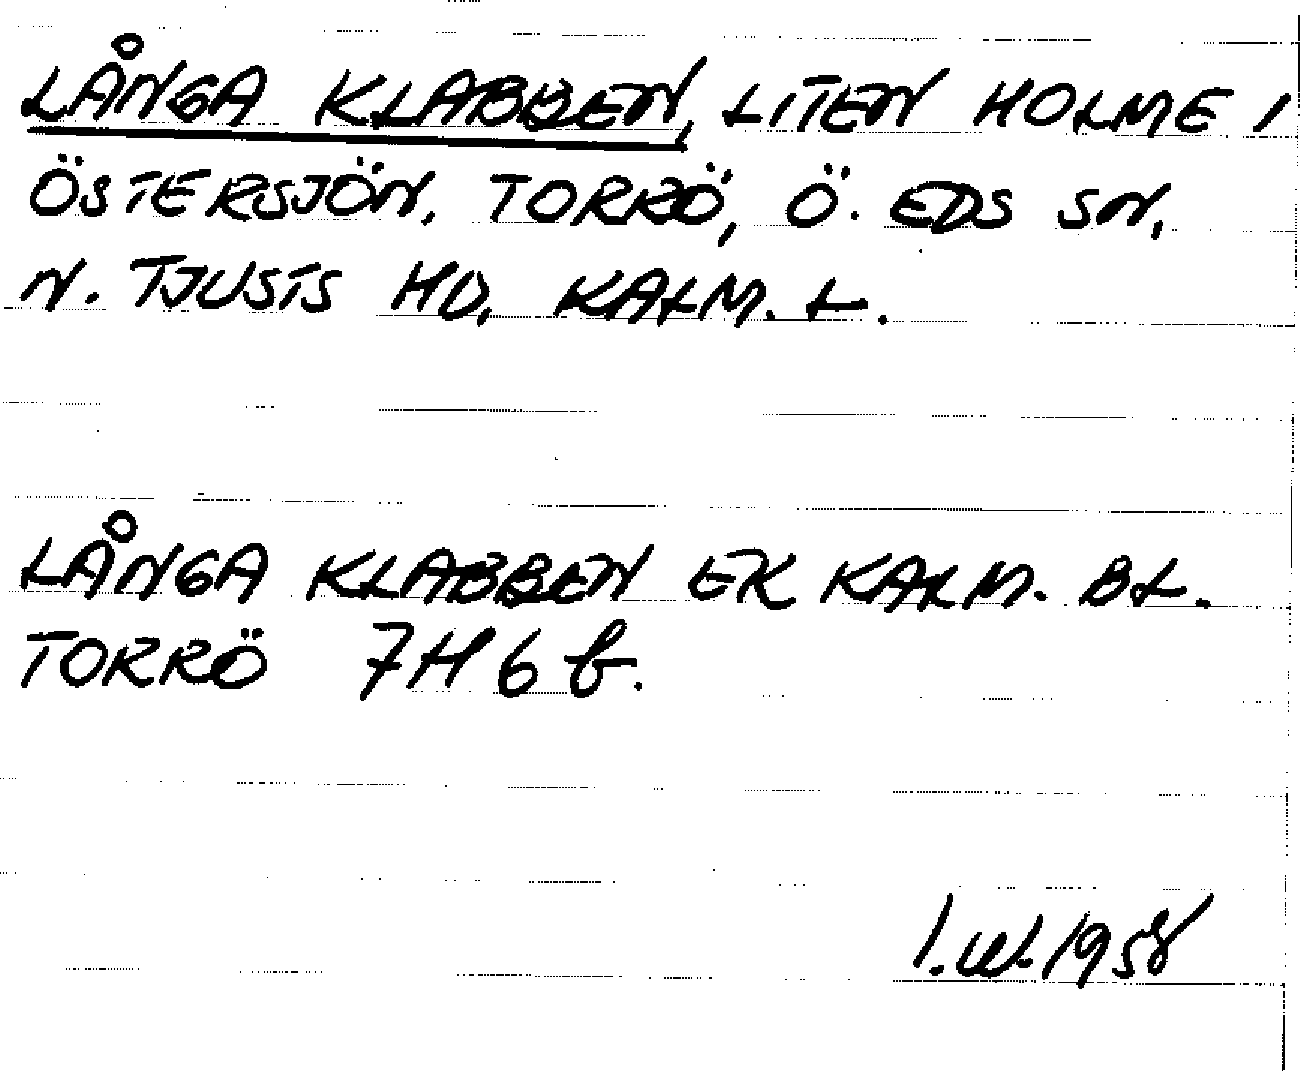 LÅNGA KLABBEN, LITEN HOLME I
ÖSTERSJÖN. TORRÖ, Ö. EDS SN,
N. TJUSTS HD, KALM. L.
LÅNGA KLABBEN EK KALM. BL.
TORRÖ 7H 6 b.
1958